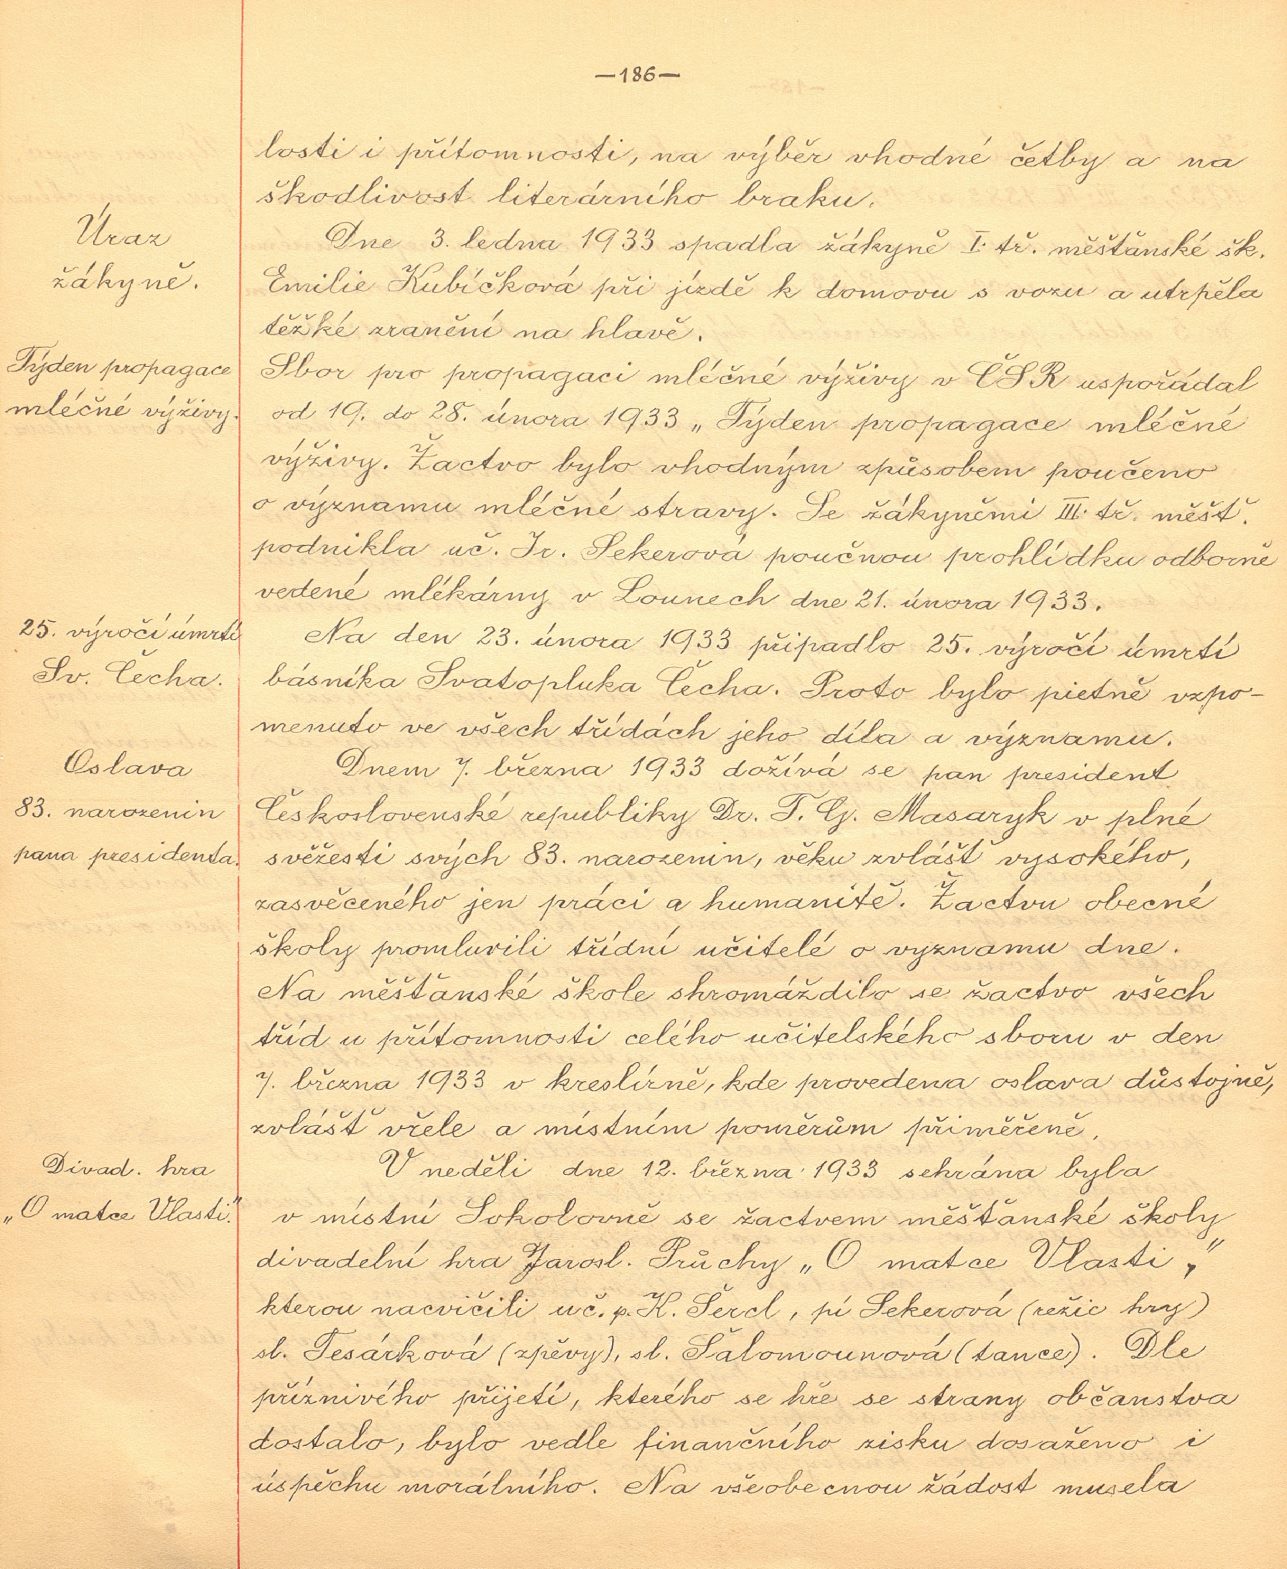 —186—
losti i přítomnosti, na výběr vhodné četby a na
škodlivost literárního braku.
Úraz
žákyně.
Dne 3. ledna 1933 spadla žákyně I. tř. měšťanské šk.
Emilie Kubíčková při jízdě k domovu s vozu a utrpěla
těžké zranění na hlavě.
Týden propagace
mléčné výživy.
Sbor pro propagaci mléčné výživy v ČSR uspořádal
od 19. do 28. února 1933 „Týden propagace mléčné
výživy. Žactvo bylo vhodným způsobem poučeno
o významu mléčné stravy. Se žákyněmi III. tř. měšť.
podnikla uč. Jr. Sekerová poučnou prohlídku odborně
vedené mlékárny v Lounech dne 21. února 1933.
25. výročí úmrtí
Sv. Čecha.
Na den 23. února 1933 připadlo 25. výročí úmrtí
básníka Svatopluka Čecha. Proto bylo pietně vzpo-
menuto ve všech třídách jeho díla a významu.
Oslava
83. narozenin
pana presidenta.
Dnem 7. března 1933 dožívá se pan president
Československé republiky Dr. T. G. Masaryk v plné
svěžesti svých 83. narozenin, věku zvlášť vysokého,
zasvěceného jen práci a humanitě. Žactvu obecné
školy promluvili třídní učitelé o vyznamu dne.
Na měšťanské škole shromáždilo se žactvo všech
tříd u přítomnosti celého učitelského sboru v den
7. března 1933 v kreslírně, kde provedena oslava důstojně,
zvlášť vřele a místním poměrům přiměřeně.
Divad. hra
„O matce Vlasti".
V neděli dne 12. března 1933 sehrána byla
v místní Sokolovně se žactvem měšťanské školy
divadelní hra Jarosl. Průchy „O matce Vlasti",
kterou nacvičili uč. p. K. Šercl, pí Sekerová (režie hry)
sl. Tesárková (zpěvy), sl. Šalomounová (tance). Dle
příznivého přijetí, kterého se hře se strany občanstva
dostalo, bylo vedle finančního zisku dosaženo i
úspěchu morálního. Na všeobecnou žádost musela